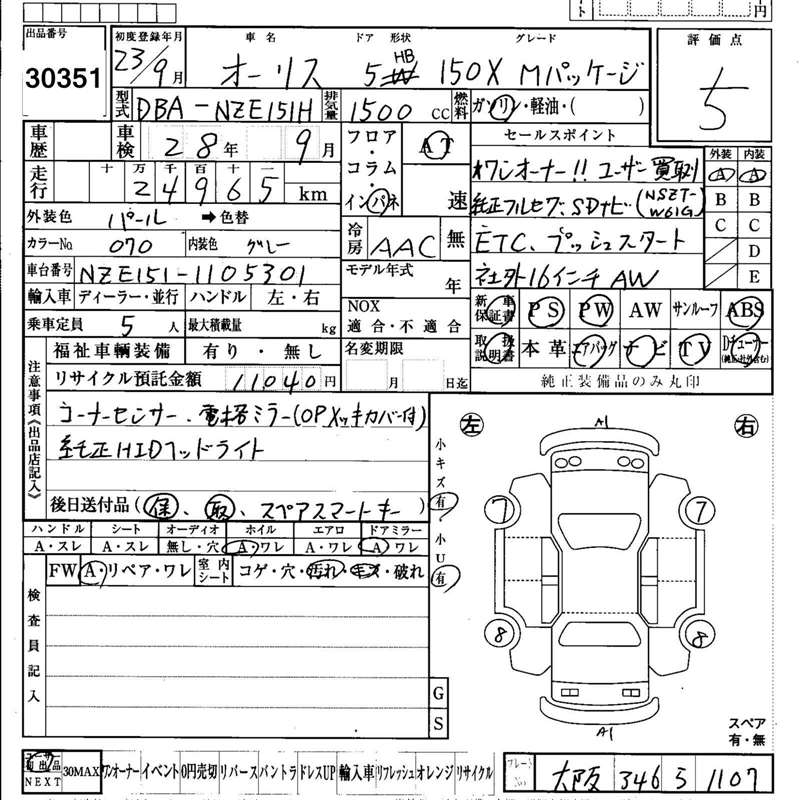 ート 円
出品番号 初度登録年月 車名 ドア 形状 グレード 評価点
30351 23/9月 オーリス 5 HB 150X Mパッケージ 5
型式 DBA-NZE151H 排気量 1500cc 燃料 ガソリン・軽油・( )
車歴 車検 28年 9月 フロア・コラム・インパネ AT 速 セールスポイント 外装 内装
走行 十 万 千 百 十 24965 km
ワンオーナー!!ユーザー買取り A A
外装色 パール ➡色替 純正フルセグ、SDナビ(NSZT-W61G) B B
カラーNo. 070 内装色 グレー 冷房 AAC 無 ETC、プッシュスタート C C
車台番号 NZE151-1105301 モデル年式 年 社外16インチAW D E
輸入車 ディーラー・並行 ハンドル 左・右 NOX 適合・不適合 新車保証書 PS PW AW サンルーフ ABS
乗車定員 5人 最大積載量 kg 取扱説明書 本革 エアバッグ ナビ TV Dチューナー(純正社外含む)
福祉車輌装備 有り・無し 名変期限 月 日迄 純正装備品のみ丸印
リサイクル預託金額 11040円
注意事項《出品店記入》
コーナーセンサー、電格ミラー(OPメッキカバー付)
純正HIDヘッドライト
後日送付品(保、取、スペアスマートキー)
小キズ有・小U有
ハンドル シート オーディオ ホイル エアロ ドアミラー
A・スレ A・スレ 無し・穴 A・ワレ A・ワレ A・ワレ
FW A・リペア・ワレ 室内シート コゲ・穴・汚れ・キズ・破れ
検査員記入
G
S
左 A1 右
7 7
8 8
A1
スペア
有・無
NEXT 30MAX ワンオーナー イベント 0円売切 リバース バントラ ドレスUP 輸入車 リフレッシュ オレンジ リサイクル
フレームNo. 大阪 346 5 1107